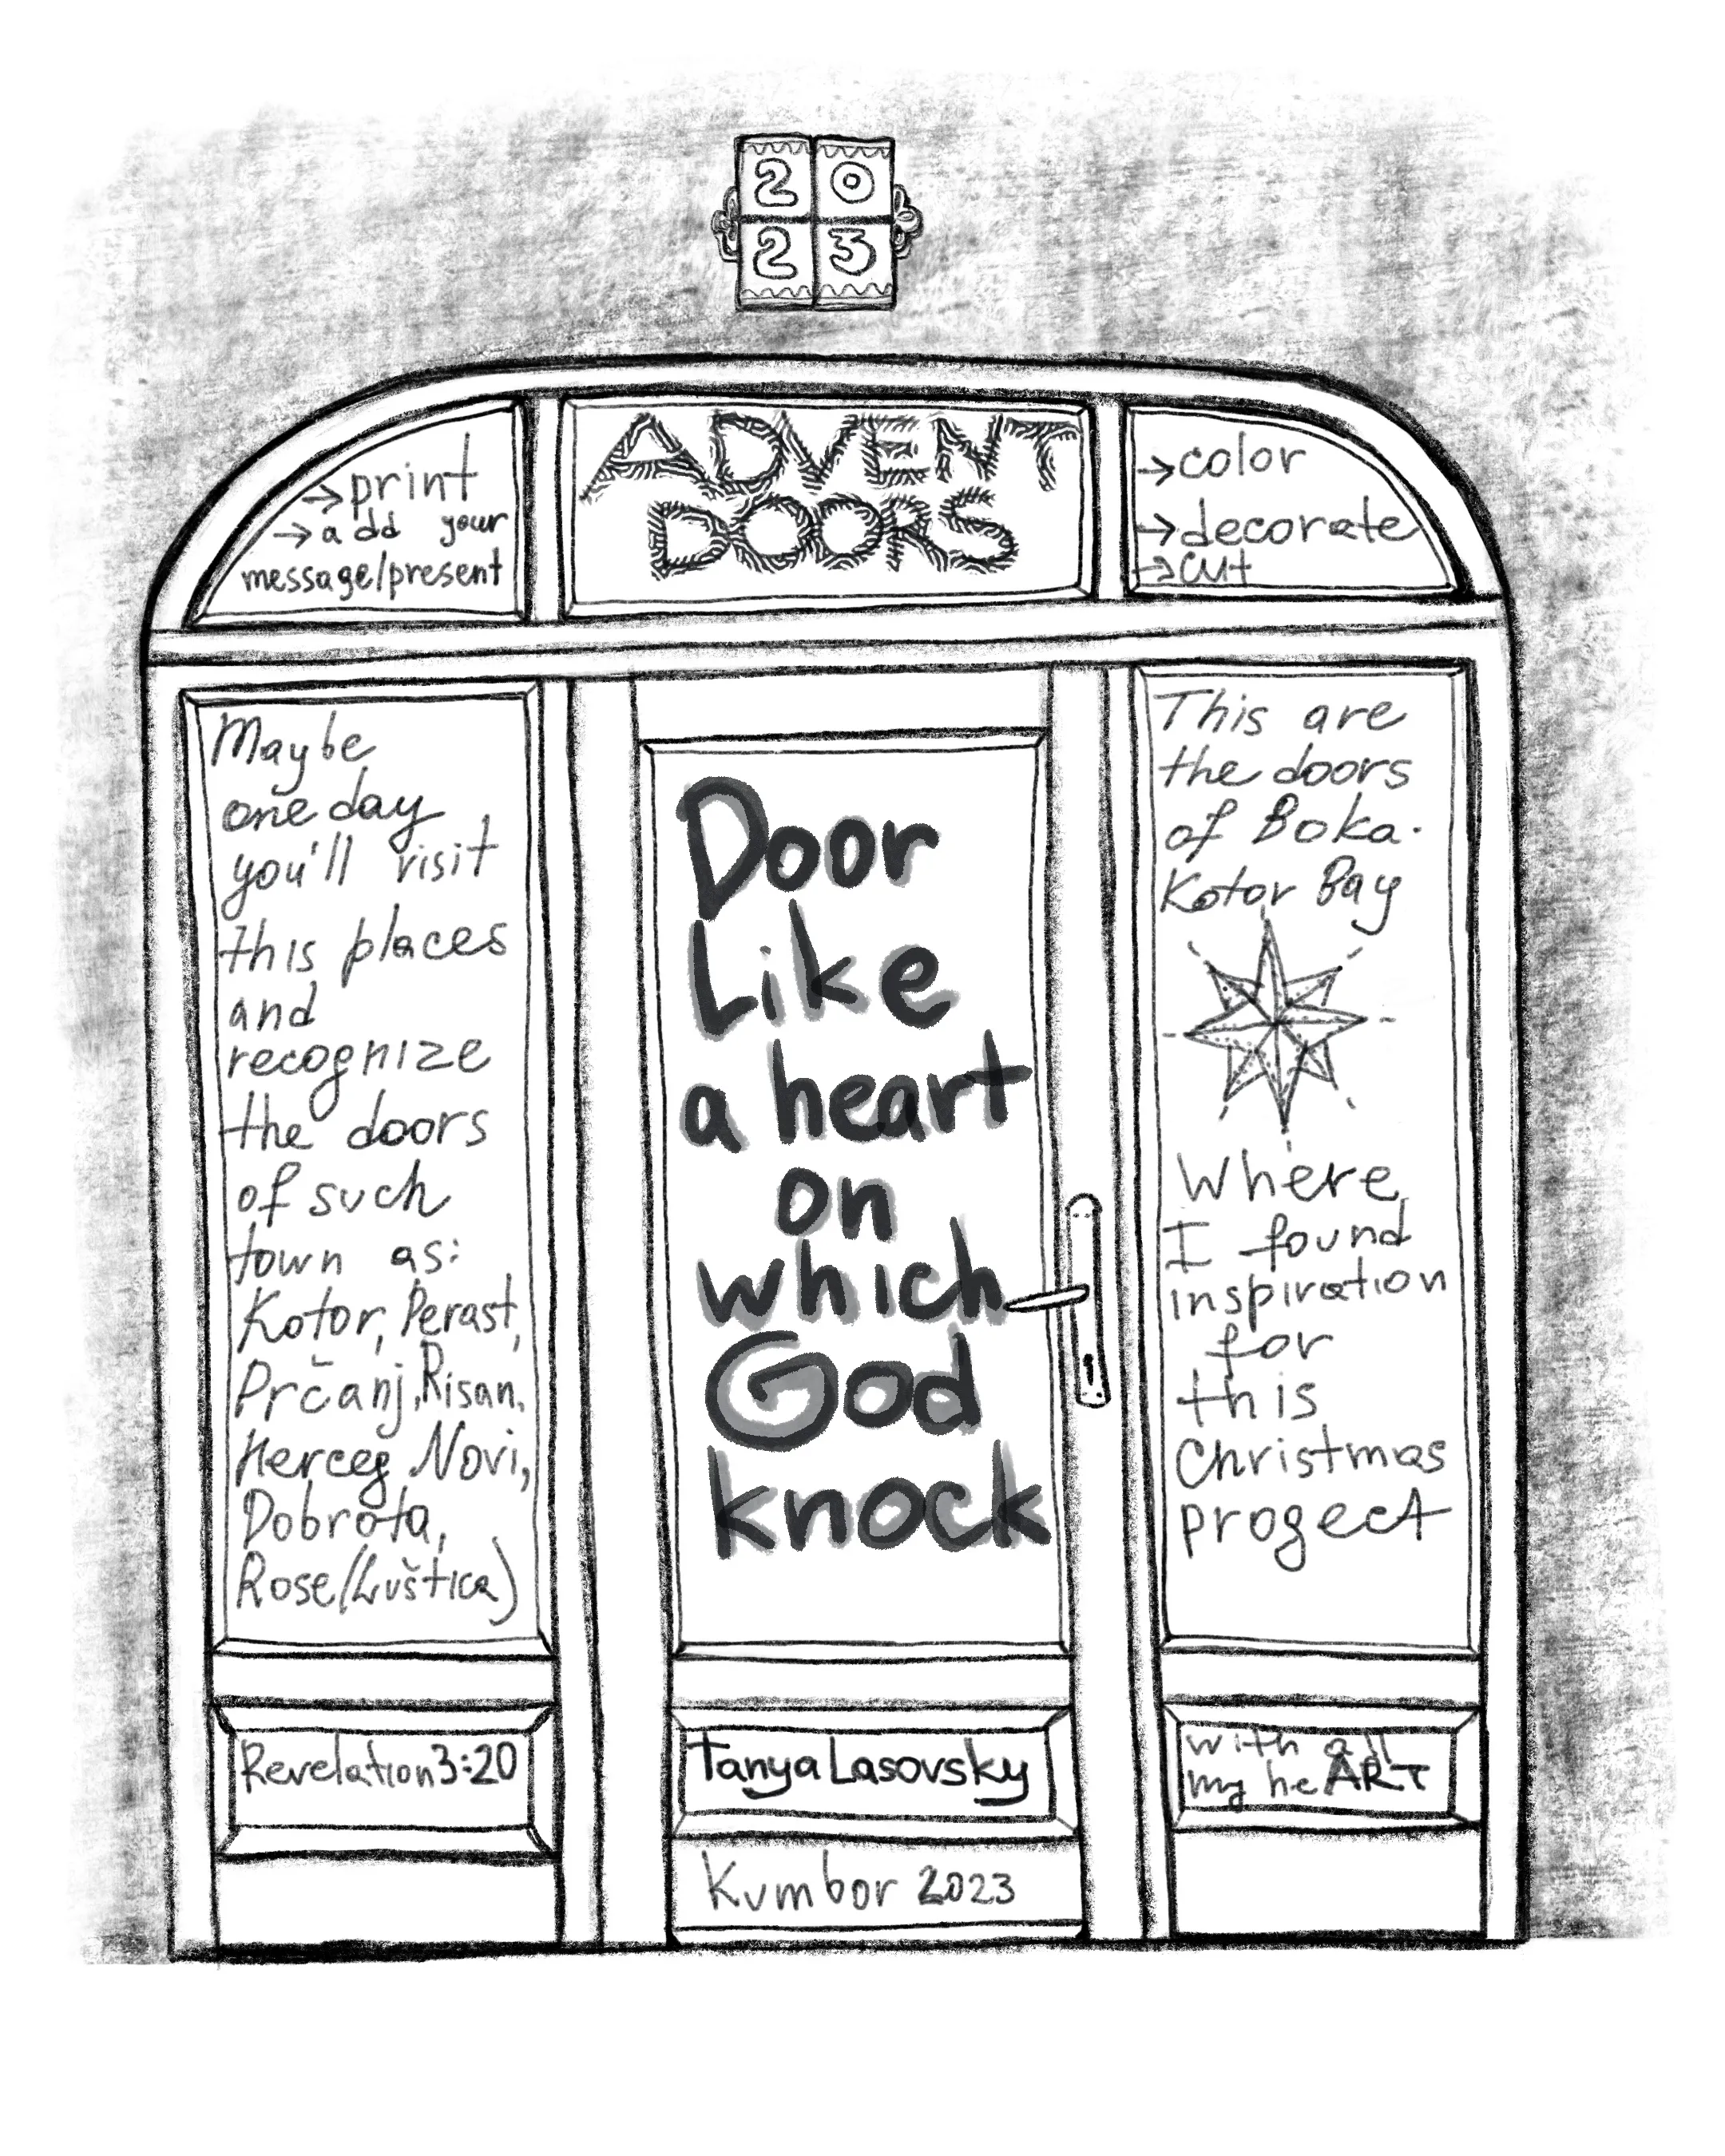 20
23
→print
→add your
message/present
ADVENT
DOORS
→color
→decorate
→cut
Maybe
one day
you'll visit
this places
and
recognize
the doors
of such
town as:
Kotor, Perast,
Prčanj, Risan,
Herceg Novi,
Dobrota,
Rose (Luštica)
Door
Like
a heart
on
which
God
knock
This are
the doors
of Boka-
Kotor Bay
Where
I found
inspiration
for
this
Christmas
progect
Revelation 3:20
Tanya Lasovsky
with all
my heART
Kumbor 2023